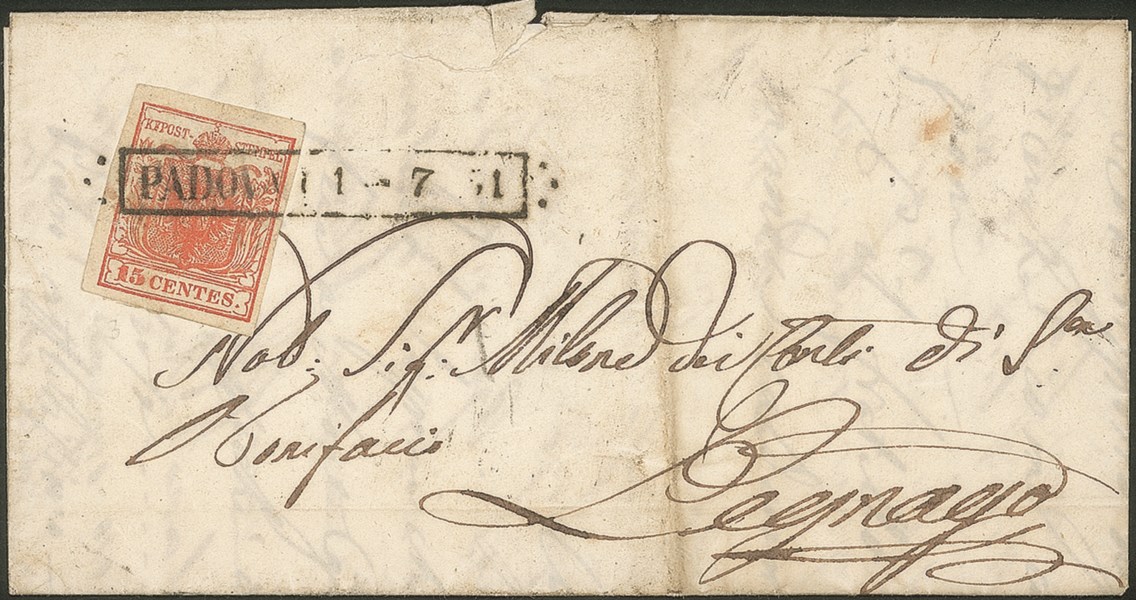 KKPOST-STEMPEL
15 CENTES.
PADOVA 11 - 7 51
Nob: Sig.r Milone dei Conti di S.
Bonifacio
Legnago